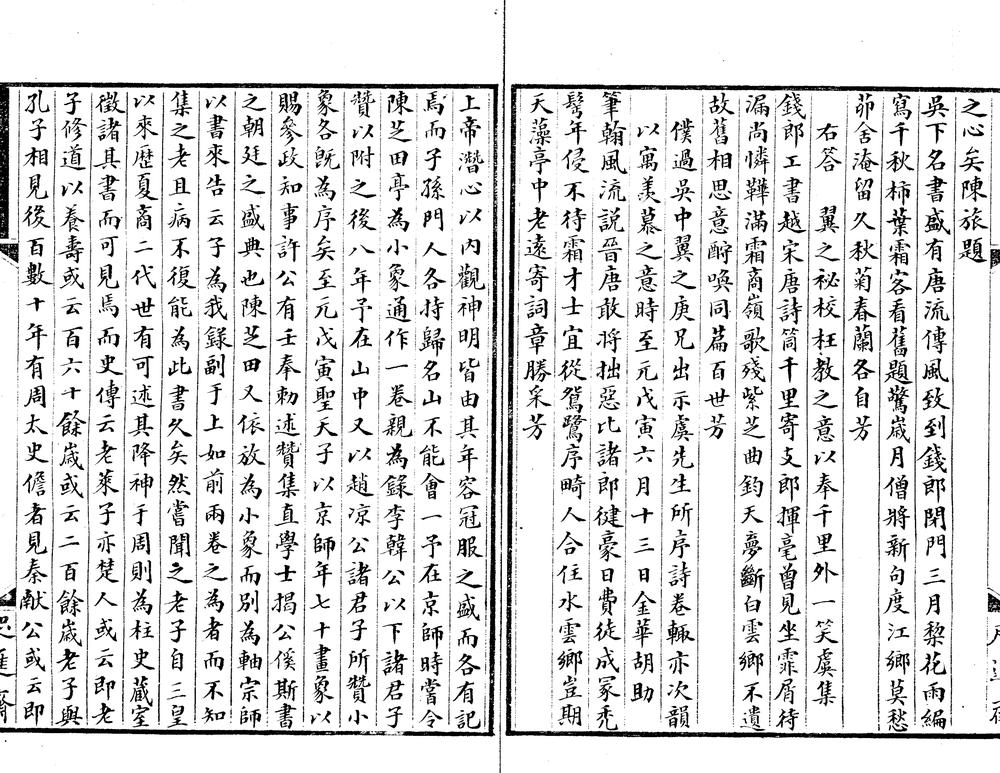 之心矣陳旅題
吳下名書盛有唐流傳風致到錢郎閉門三月棃花雨編
寫千秋柿葉霜客看舊題驚嵗月僧將新句度江鄉莫愁
茆舍淹留久秋菊春蘭各自芳
右答 翼之祕校枉教之意以奉千里外一笑虞集
錢郎工書越宋唐詩筒千里寄支郎揮毫曾見坐霏屑待
漏尚憐鞾滿霜商嶺歌殘紫芝曲鈞天夢斷白雲鄉不遺
故舊相思意酧唤同篇百世芳
僕過吳中翼之庚兄出示虞先生所序詩卷輙亦次韻
以寓羡慕之意時至元戊寅六月十三日金華胡助
筆翰風流説晉唐敢將拙惡比諸郎徤豪日費徒成冢秃
鬂年侵不待霜才士宜從鴛鷺序畸人合住水雲鄉豈期
天藻亭中老遠寄詞章勝采芳
上帝濳心以内觀神明皆由其年容冠服之盛而各有記
焉而子孫門人各持歸名山不能會一予在京師時嘗令
陳芝田亭為小象通作一卷親為錄李韓公以下諸君子
贊以附之後八年予在山中又以趙凉公諸君子所贊小
象各旣為序矣至元戊寅聖天子以京師年七十畫象以
賜參政知事許公有壬奉勑述贊集直學士揭公傒斯書
之朝廷之盛典也陳芝田又依放為小象而别為軸宗師
以書來告云子為我錄副于上如前兩卷之為者而不知
集之老且病不復能為此書久矣然嘗聞之老子自三皇
以來歴夏商二代世有可述其降神于周則為柱史藏室
徵諸其書而可見焉而史傳云老萊子亦楚人或云即老
子修道以養壽或云百六十餘嵗或云二百餘嵗老子與
孔子相見後百數十年有周太史儋者見秦献公或云即